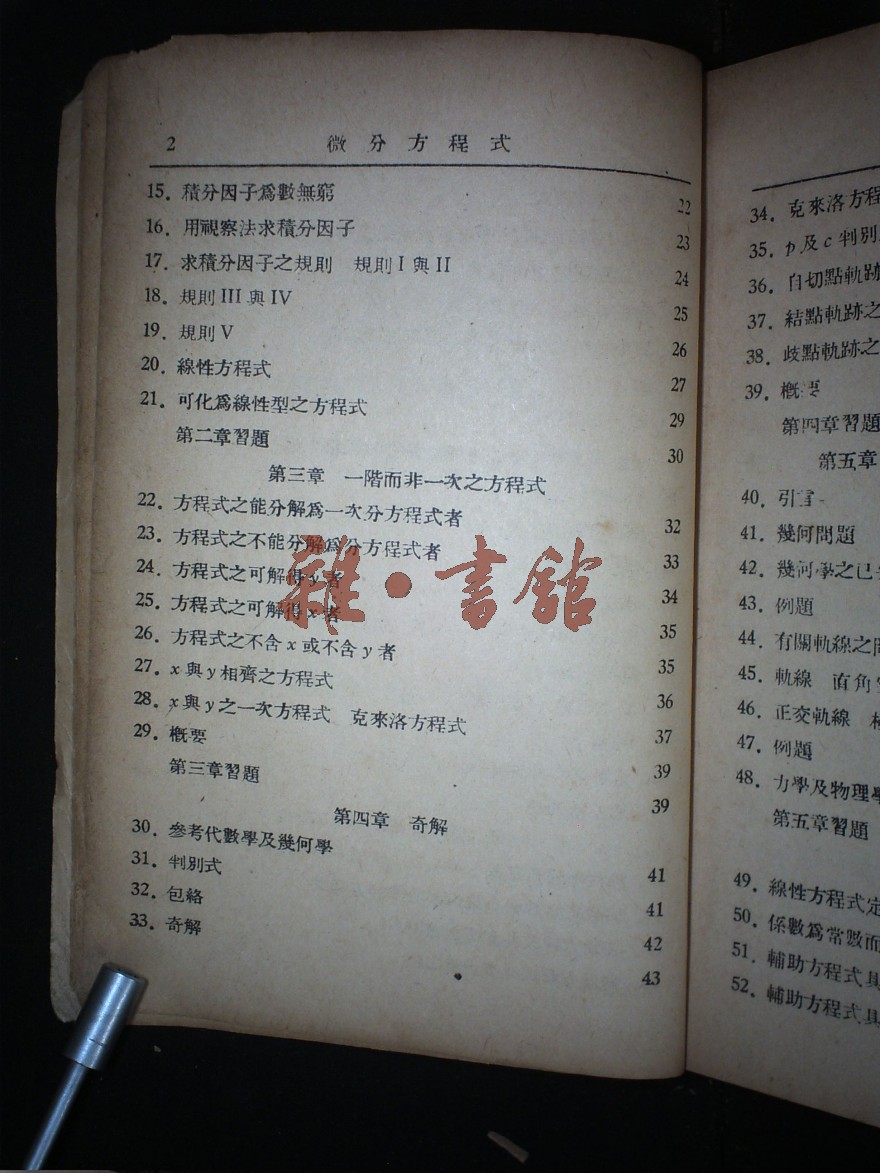 2 微分方程式
15. 積分因子爲數無窮 22
16. 用視察法求積分因子 23
17. 求積分因子之規則 規則 I 與 II 24
18. 規則 III 與 IV 25
19. 規則 V 26
20. 線性方程式 27
21. 可化爲線性型之方程式 29
第二章習題 30
第三章 一階而非一次之方程式
22. 方程式之能分解爲一次分方程式者 32
23. 方程式之不能分解爲分方程式者 33
24. 方程式之可解得 y 者 34
25. 方程式之可解得 x 者 35
26. 方程式之不含 x 或不含 y 者 35
27. x 與 y 相齊之方程式 36
28. x 與 y 之一次方程式 克來洛方程式 37
29. 概要 39
第三章習題 39
第四章 奇解
30. 參考代數學及幾何學 41
31. 判別式 41
32. 包絡 42
33. 奇解 43
雜·書館
34. 克來洛方程
35. p 及 c 判別
36. 自切點軌跡
37. 結點軌跡之
38. 歧點軌跡之
39. 概要
第四章習題
第五章
40. 引言
41. 幾何問題
42. 幾何學之已
43. 例題
44. 有關軌線之
45. 軌線 直角
46. 正交軌線
47. 例題
48. 力學及物理學
第五章習題
49. 線性方程式定
50. 係數爲常數而
51. 輔助方程式具
52. 輔助方程式具